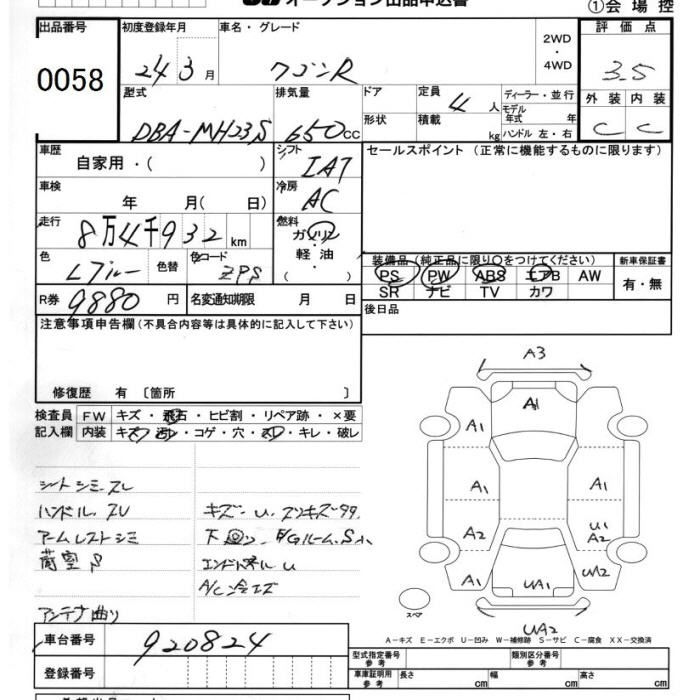 オークション出品申込書
①会場控
出品番号
0058
初度登録年月
24 3 月
車名・グレード
ワゴンR
2WD
・
4WD
評価点
3.5
外装 内装
C C
型式
DBA-MH23S
排気量
650cc
ドア
形状
定員
4 人
積載
kg
ディーラー・並行
モデル
年式 年
ハンドル 左・右
車歴
自家用・( )
シフト
IAT
セールスポイント(正常に機能するものに限ります)
車検
年 月( 日)
冷房
AC
走行
8万4千932 km
燃料
ガソリン
・
軽油
・
( )
色
Lブルー
色替
色コード
ZPS
装備品(純正品に限り○をつけてください)
新車保証書
PS PW ABS エアB AW
SR ナビ TV カワ
有・無
R券
9880 円
名変通知期限 月 日
後日品
注意事項申告欄(不具合内容等は具体的に記入して下さい)
修復歴 有 〔箇所 〕
検査員
記入欄
FW キズ・飛石・ヒビ割・リペア跡・×要
内装 キズ・汚レ・コゲ・穴・スレ・キレ・破レ
シートシミ、スレ
ハンドル、スレ
アームレストシミ
荷室 S
アンテナ曲り
キズ・U、スリキズ・タタ
下廻り、E/Gルーム、S
エンドパネル U
A/C
A3
A1
A1
A1
A1
A2
U1
A2
A1
UA1
UA2
UA2
スペア
A-キズ E-エクボ U-凹み W-補修跡 S-サビ C-腐食 XX-交換済
車台番号
920824
登録番号
型式指定番号
参考
類別区分番号
参考
車庫証明用
参考
長さ cm
幅 cm
高さ cm